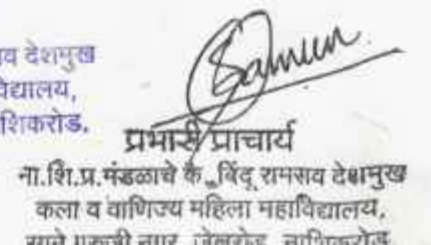 व देशमुख
विद्यालय,
शिकरोड.
प्रभारी प्राचार्य
ना.शि.प्र.मंडळाचे कै. बिंदू रामराव देशमुख
कला व वाणिज्य महिला महाविद्यालय,
साने गुरुजी नगर, जेलरोड, नाशिकरोड